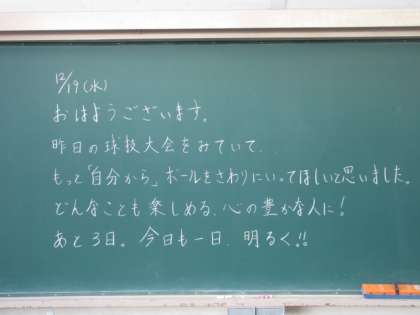 12/19(水)
おはようございます。
昨日の球技大会をみていて、
もっと「自分から」ボールをさわりにいってほしいと思いました。
どんなことも楽しめる、心の豊かな人に!
あと3日。今日も一日、明るく!!